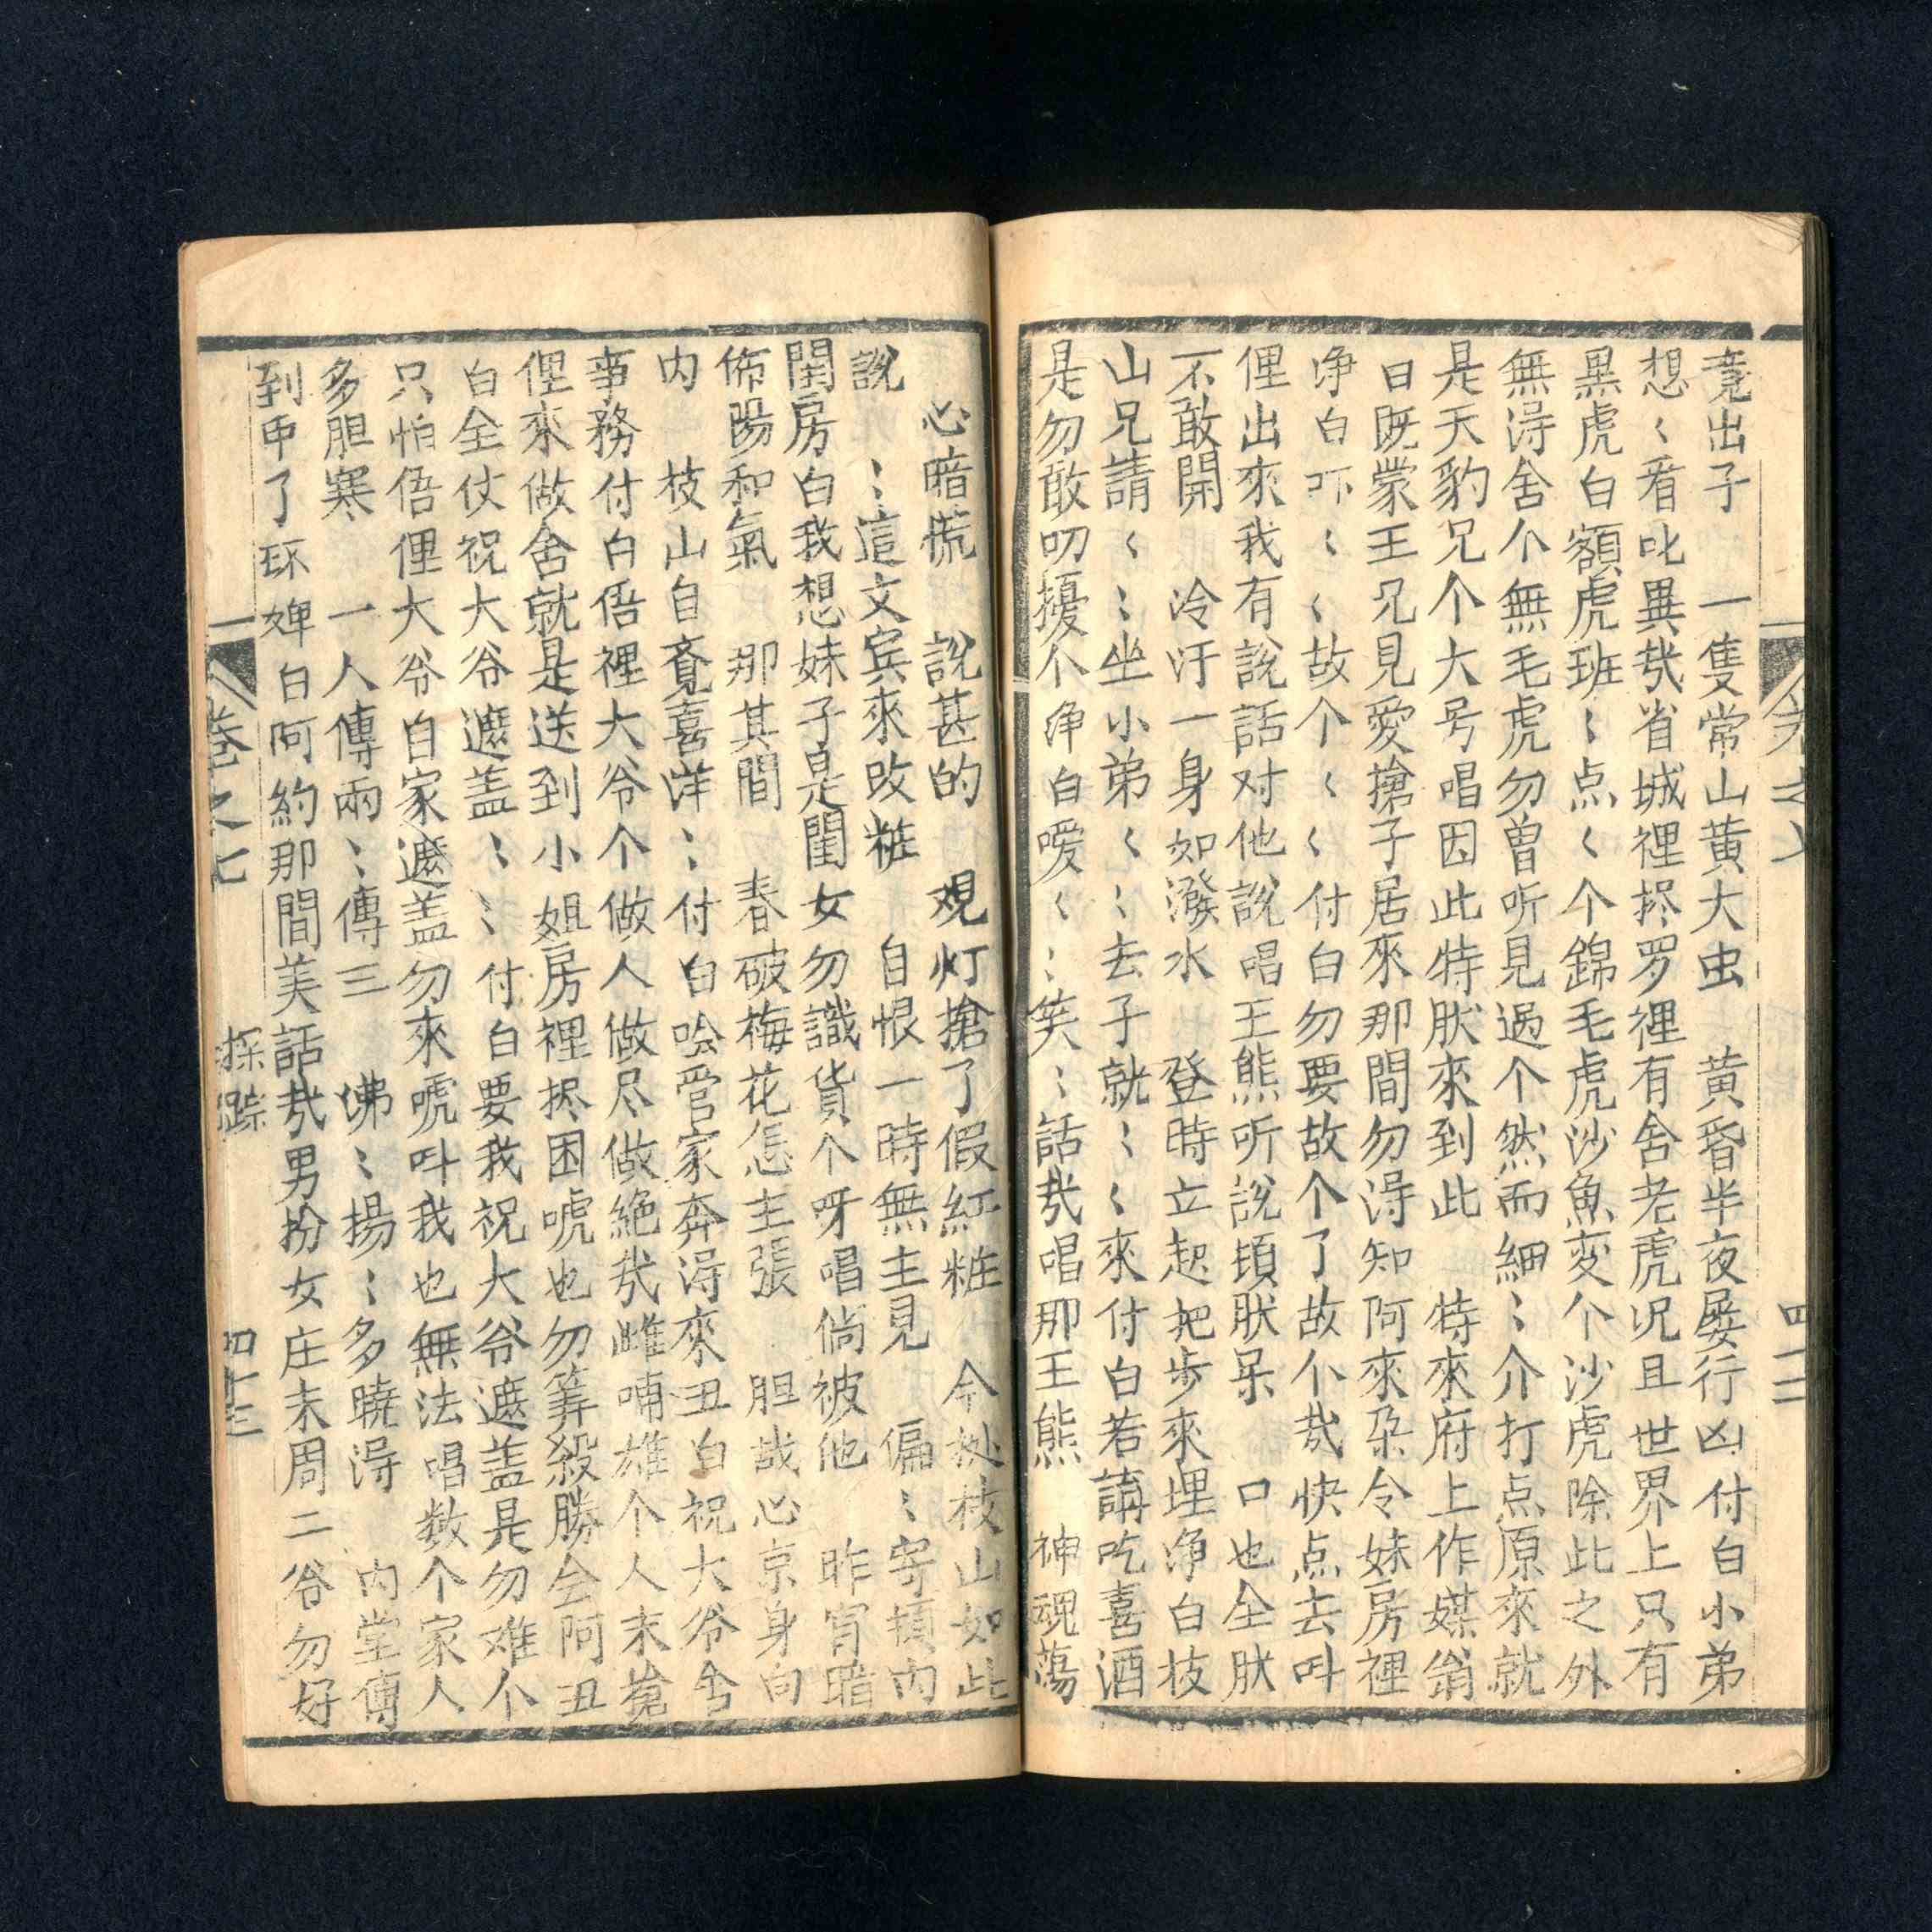 竟出子　一隻常山黃大虫　黄昏半夜屡行凶付白小弟
想〻看叱異㢤省城裡拯罗裡有舍老虎况且世界上只有
黒虎白額虎班〻点〻个錦毛虎沙魚変个沙虎除此之外
無淂舍个無毛虎勿曽听見過个然而細〻介打点原來就
是天豹兄个大号唱因此特肰來到此　特來府上作媒翁
曰既蒙王兄見愛搶子居來那間勿淂知阿來朶令妹房裡
净白吓〻〻故个〻〻付白勿要故个了故个㢤快点去叫
俚出來我有說話对他說唱王熊听說頓肰呆　口也全肰
不敢開　冷汗一身如潑水　登時立起把步來埋净白枝
山兄請〻〻坐小弟〻〻去子就〻〻來付白若講吃喜酒
是勿敢叨擾个净白噯〻〻笑〻話㢤唱那王熊　神魂蕩
心暗慌　說甚的　覌灯搶了假紅粧　今挝枝山如此
說〻〻這文宾來改粧　自恨一時無主見　偏〻寄頓内
閨房白我想妹子是閨女勿識貨个呀唱倘被他　昨宵暗
佈陽和氣　那其間　春破梅花怎主張　胆戰心京身向
内　枝山自覔喜洋〻付白唅官家奔淂來丑白祝大爷舍
事務付白俉裡大爷个做人做尽做絶㢤雌喃雄个人末搶
俚來做舍就是送到小姐房裡拯困唬也勿筭殺勝会阿丑
白全仗祝大爷遮盖〻〻付白要我祝大爷遮盖是勿难个
只怕俉俚大爷自家遮盖勿來唬叫我也無法唱数个家人
多胆寒　一人傳兩〻傳三　沸〻揚〻多曉淂　内堂傳
到甲了环婢白阿約那間美話㢤男扮女庄末周二爷勿好
卷之七
探踪
四十三